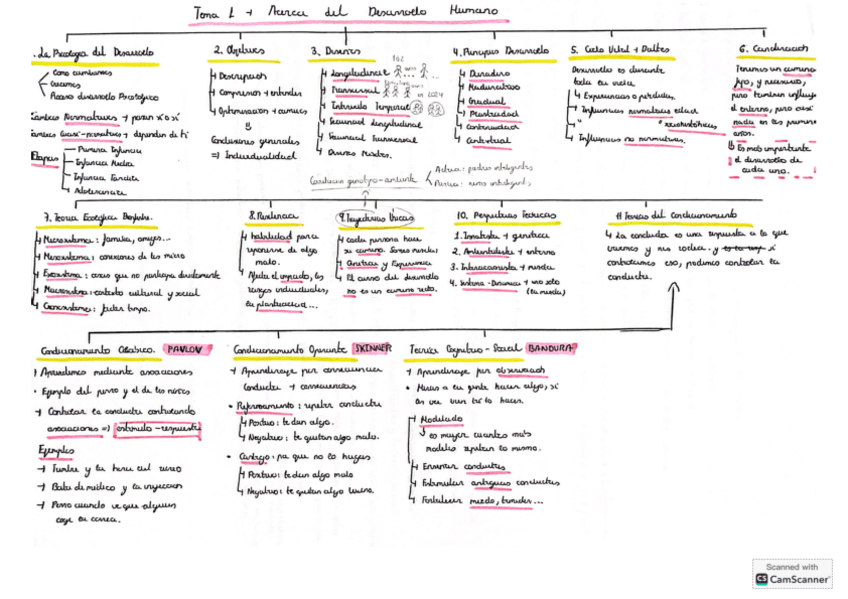 Tema 1 → Acerca del Desarrollo Humano
1. La Psicología del Desarrollo
Como cambiamos
Crecemos
Cambios Normativos → pasan sí o sí
Cambios Cuasi-normativos → dependen de ti
Etapas
Primera Infancia
Infancia Media
Infancia Tardía
Adolescencia
2. Objetivos
Descripción
Comprension + entender
Optimización + cambios
Conclusiones generales
⇒ Individualidad
3. Diseños
Longitudinal
Transversal
Intervalo Temporal
Secuencial Longitudinal
Secuencial Transversal
4. Principios Desarrollo
Duradero
Madurativo
Gradual
Plasticidad
Continuidad
Contextual
5. Ciclo Vital → Baltes
Desarrollo es durante
toda tu vida
Experiencias o pérdidas.
Influencias normativas edad
Influencias no normativas.
6. Canalización
Tenemos un camino
fijo, y necesario,
pero también influye
el entorno, pero casi
nada en los primeros
años.
Es mas importante
el desarrollo de
cada uno.
Correlación genotipo-ambiente
Activa: padres inteligentes
7. Teoría Ecológica
Microsistema: familia, amigos...
Mesosistema: conexiones de los micro
Exosistema: cosas que no participa directamente
Macrosistema: contexto cultural y social
Cronosistema: factor tiempo.
8. Resiliencia
habilidad para
reponerse de algo
malo.
Ayuda el apoyo, los
rasgos individuales,
la plasticidad...
9. Trayectorias Únicas
cada persona hace
su camino.
Genética y Experiencia
El curso del desarrollo
no es un camino recto.
10. Perspectivas Teóricas
1. Innatista + genética
2. Ambientalista + entorno
3. Interaccionista + mezcla
4. Sistema-Dinámica + uno solo
(la mezcla)
11. Teorías del Condicionamiento
La conducta es una respuesta a lo que
vivimos y nos rodea. si
controlamos eso, podemos controlar la
conducta.
Condicionamiento Clásico. PAVLOV
Aprendemos mediante asociaciones
Ejemplo del perro y el de los niños
Controlar la conducta controlando
asociaciones ⇒ estímulo-respuesta
Ejemplos
Timbre y la hora del recreo
Bata de médico y la inyección
Perro cuando ve que alguien
coge su correa.
Condicionamiento Operante SKINNER
Aprendizaje por consecuencias
Conducta → consecuencias
Reforzamiento: repetir conducta
Positivo: te dan algo.
Negativo: te quitan algo malo.
Castigo: pa que no lo hagas
Positivo: te dan algo malo
Negativo: te quitan algo bueno.
Teoría Cognitivo-Social BANDURA
Aprendizaje por observación
Miras a la gente hacer algo, si
les va bien tú lo haces.
Modelado
es mayor cuantos más
modelos repitan lo mismo.
Enseñar conductas
Estimular antiguas conductas
Fortalecer miedo, timidez...
Scanned with
CS CamScanner